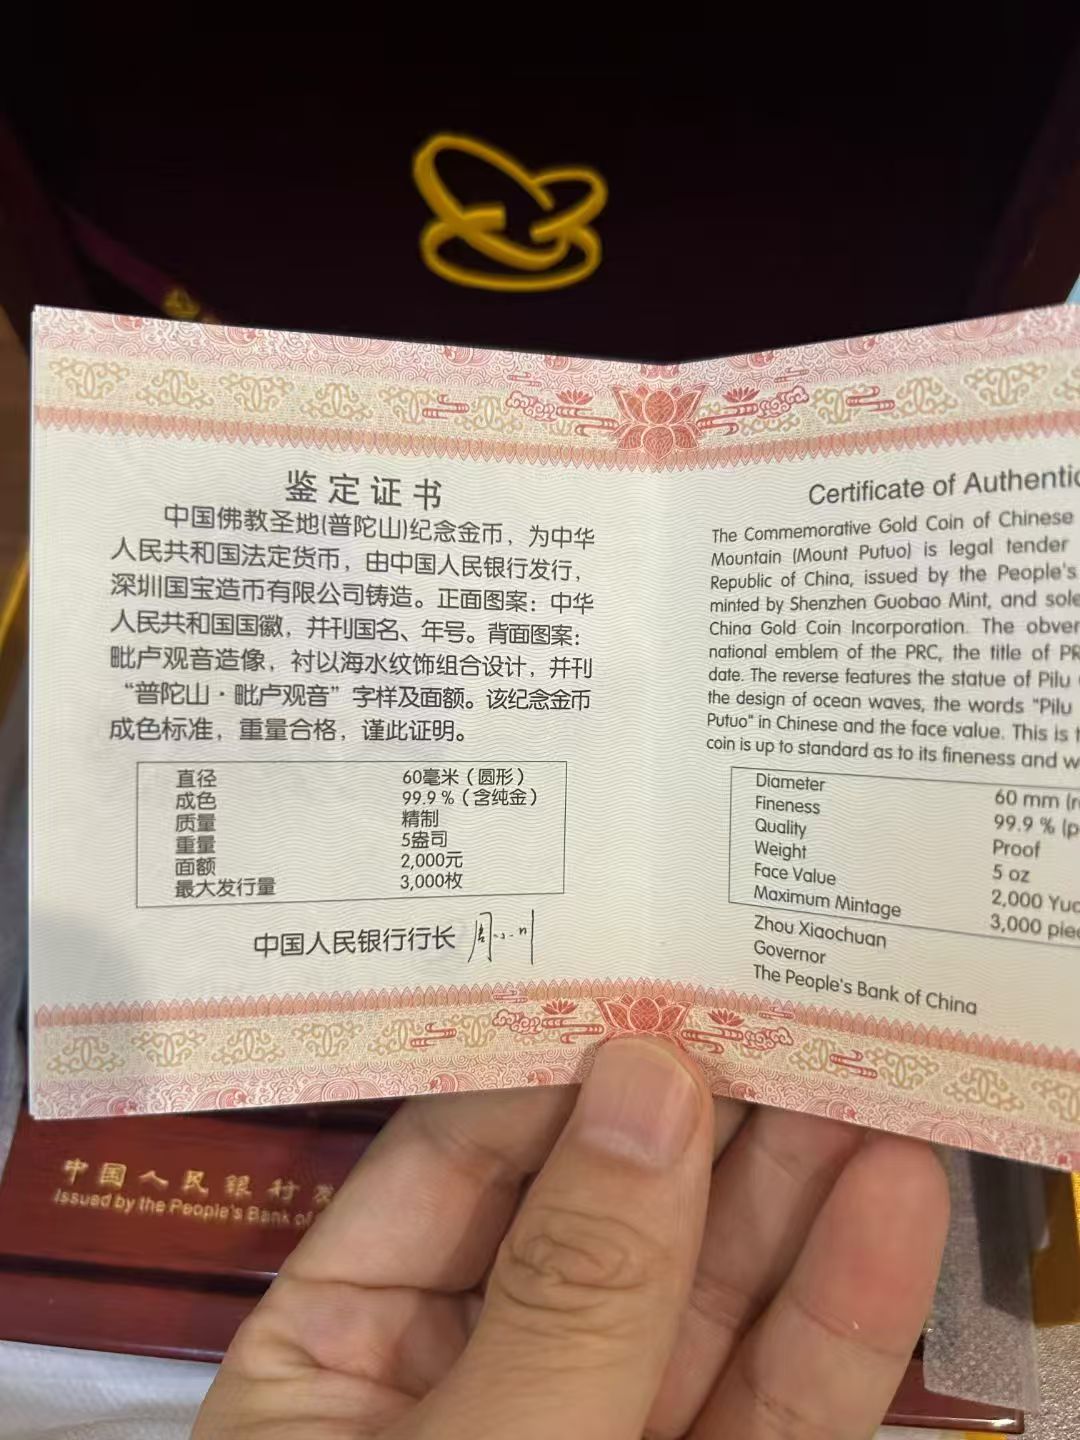 鉴定证书
中国佛教圣地(普陀山)纪念金币，为中华
人民共和国法定货币，由中国人民银行发行，
深圳国宝造币有限公司铸造。正面图案：中华
人民共和国国徽，并刊国名、年号。背面图案：
毗卢观音造像，衬以海水纹饰组合设计，并刊
“普陀山·毗卢观音”字样及面额。该纪念金币
成色标准，重量合格，谨此证明。
直径 60毫米（圆形）
成色 99.9%（含纯金）
质量 精制
重量 5盎司
面额 2,000元
最大发行量 3,000枚
中国人民银行行长 周小川
Certificate of
The Commemorative Gold Coin of Chinese
Mountain (Mount Putuo) is legal tender
Republic of China, issued by the People's
minted by Shenzhen Guobao Mint, and
China Gold Coin Incorporation. The
national emblem of the PRC, the title of
date. The reverse features the statue of Pilu
the design of ocean waves, the words "Pilu
Putuo" in Chinese and the face value. This is
coin is up to standard as to its fineness and
Diameter 60 mm
Fineness 99.9 %
Quality Proof
Weight 5 oz
Face Value 2,000
Maximum Mintage 3,000
Zhou Xiaochuan
Governor
The People's Bank of China
中国人民银行发
Issued by the People's Bank of